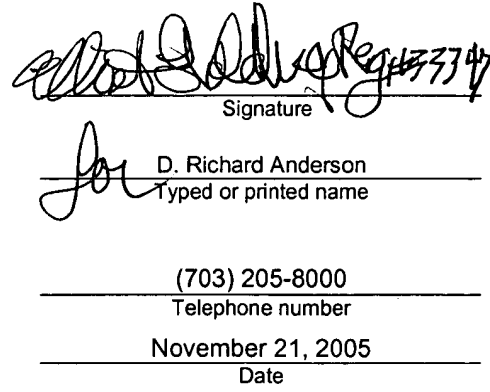 Reg #33347
Signature
for D. Richard Anderson
Typed or printed name
(703) 205-8000
Telephone number
November 21, 2005
Date